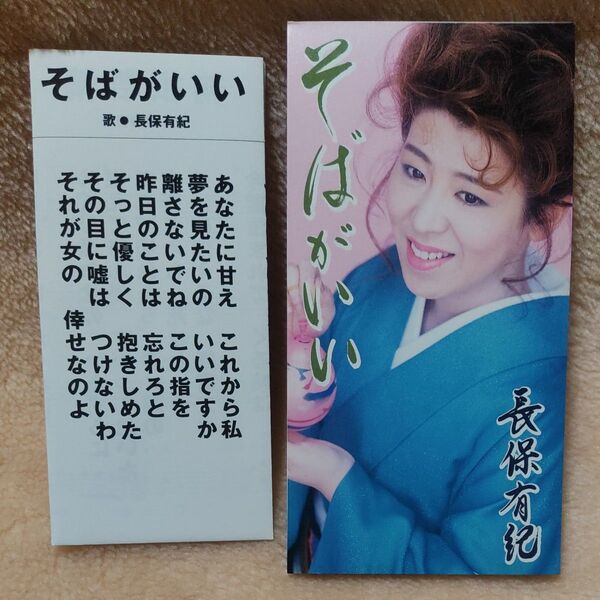 そばがいい
歌●長保有紀
あなたに甘え　これから私
夢を見たいの　いいですか
離さないでね　この指を
昨日のことは　忘れろと
そっと優しく　抱きしめた
その目に嘘は　つけないわ
それが女の　倖せなのよ
そばがいい
長保有紀